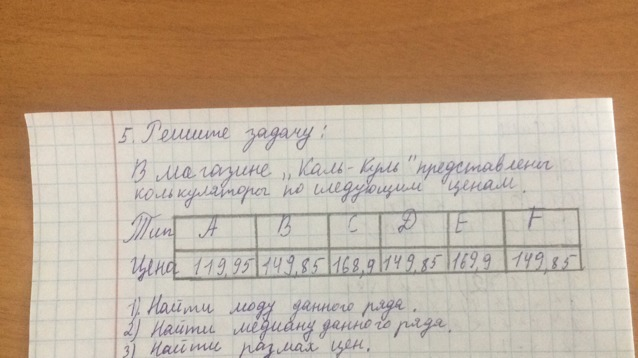 5. Решите задачу:
В магазине „Каль-Куль" представлены
колькуляторы по следующим ценам.
Тип A B C D E F
Цена 119,95 149,85 168,9 149,85 169,9 149,85
1) Найти моду данного ряда.
2) Найти медиану данного ряда.
3) Найти размах цен.